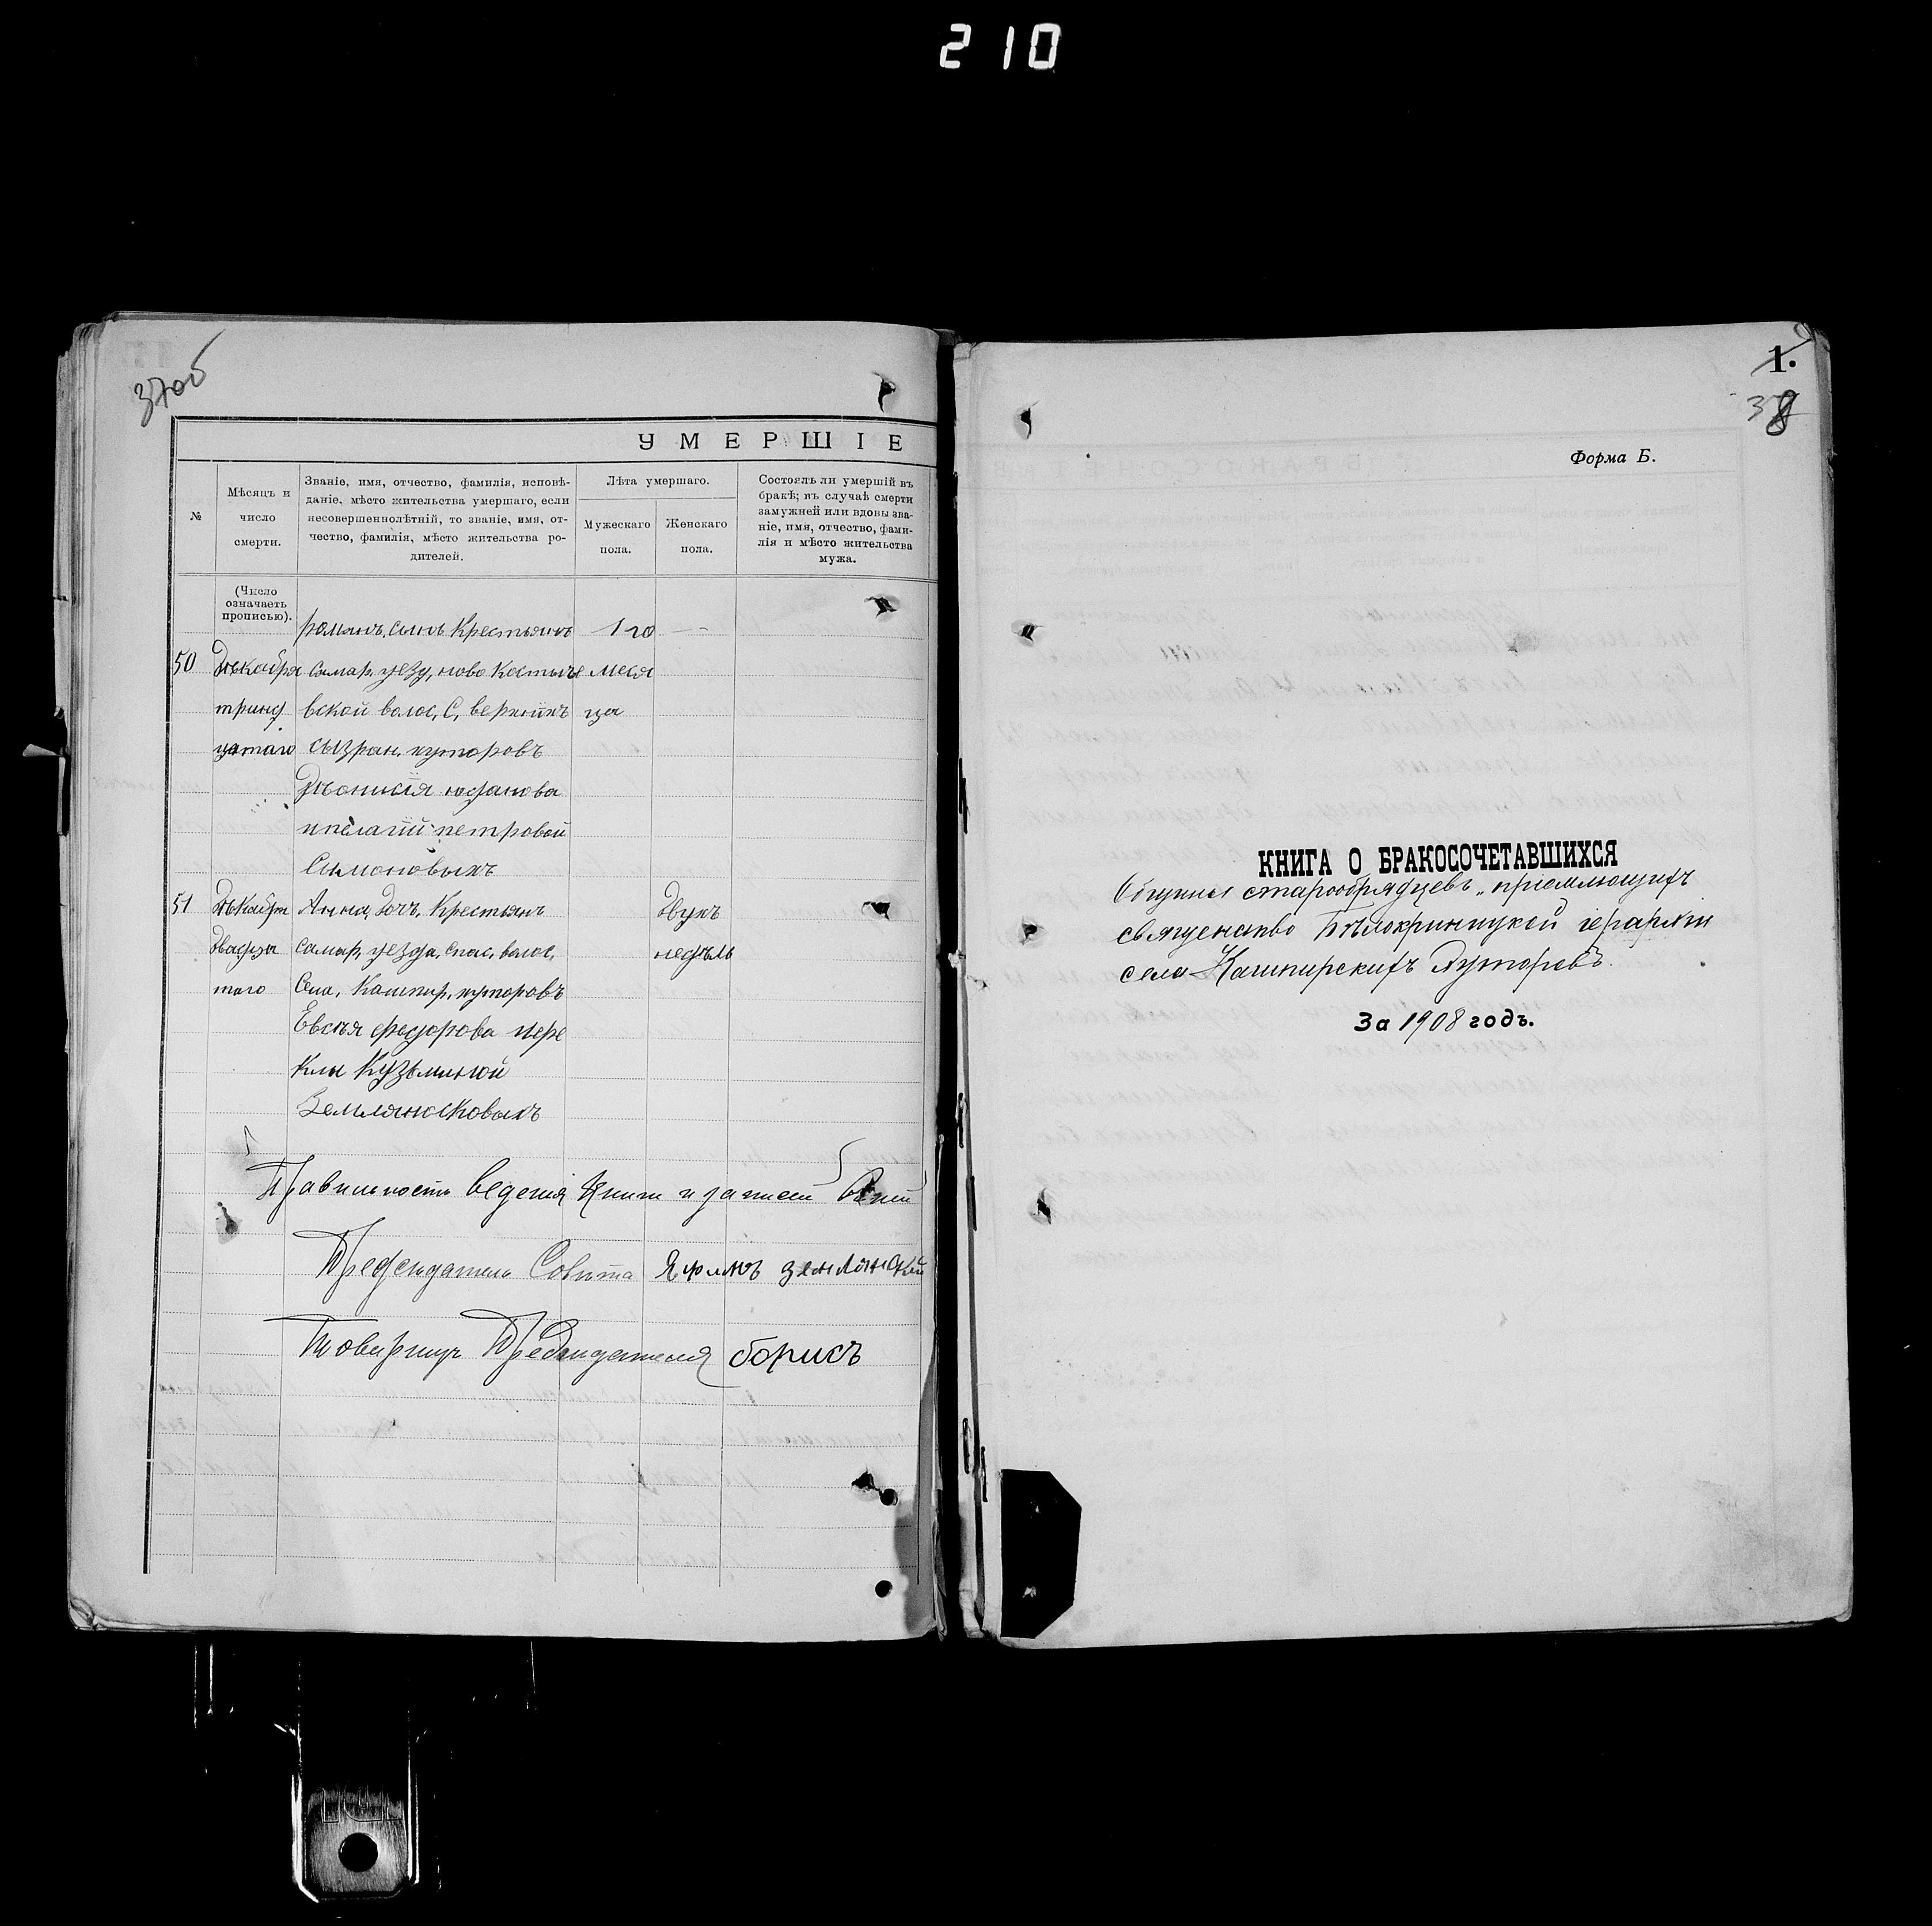 210
37об
УМЕРШІЕ
№
Мѣсяцъ и
число
смерти.
Званіе, имя, отчество, фамилія, исповѣ-
даніе, мѣсто жительства умершаго, если
несовершеннолѣтній, то званіе, имя, от-
чество, фамилія, мѣсто жительства ро-
дителей.
Лѣта умершаго.
Мужескаго
пола.
Женскаго
пола.
Состоялъ ли умершій въ
бракѣ; въ случаѣ смерти
замужней или вдовы зва-
ніе, имя, отчество, фами-
лія и мѣсто жительства
мужа.
(Число
означаетъ
прописью).
романъ, сынъ Крестьянъ 1го —
50 Дѣкабря самар, уезду, ново Костыче меся
тринд вской волос, С, верхнихъ ца
цатаго сызран. хуторовъ
Дѣонисія
ипелагіи петровой
Симоновыхъ
51 Дѣкабря Анна, Доч, Крестьянъ Двухъ
двадца самар, уезда, спас, волос, недѣль
таго Села, Кашпир, хуторовъ
Евсѣя федорова ифе
клы Кузьминой
Земляносковыхъ
Правильность веденія Книги и записей
Председатель Совѣта
Товарищъ Председателя борисъ
1.
38
Форма Б.
КНИГА О БРАКОСОЧЕТАВШИХСЯ
Общины старообрядцевъ „пріемлющихъ
священство Бѣлокриницкой іерархіи
села Кашпирскихъ Хуторовъ.
За 1908 годъ.